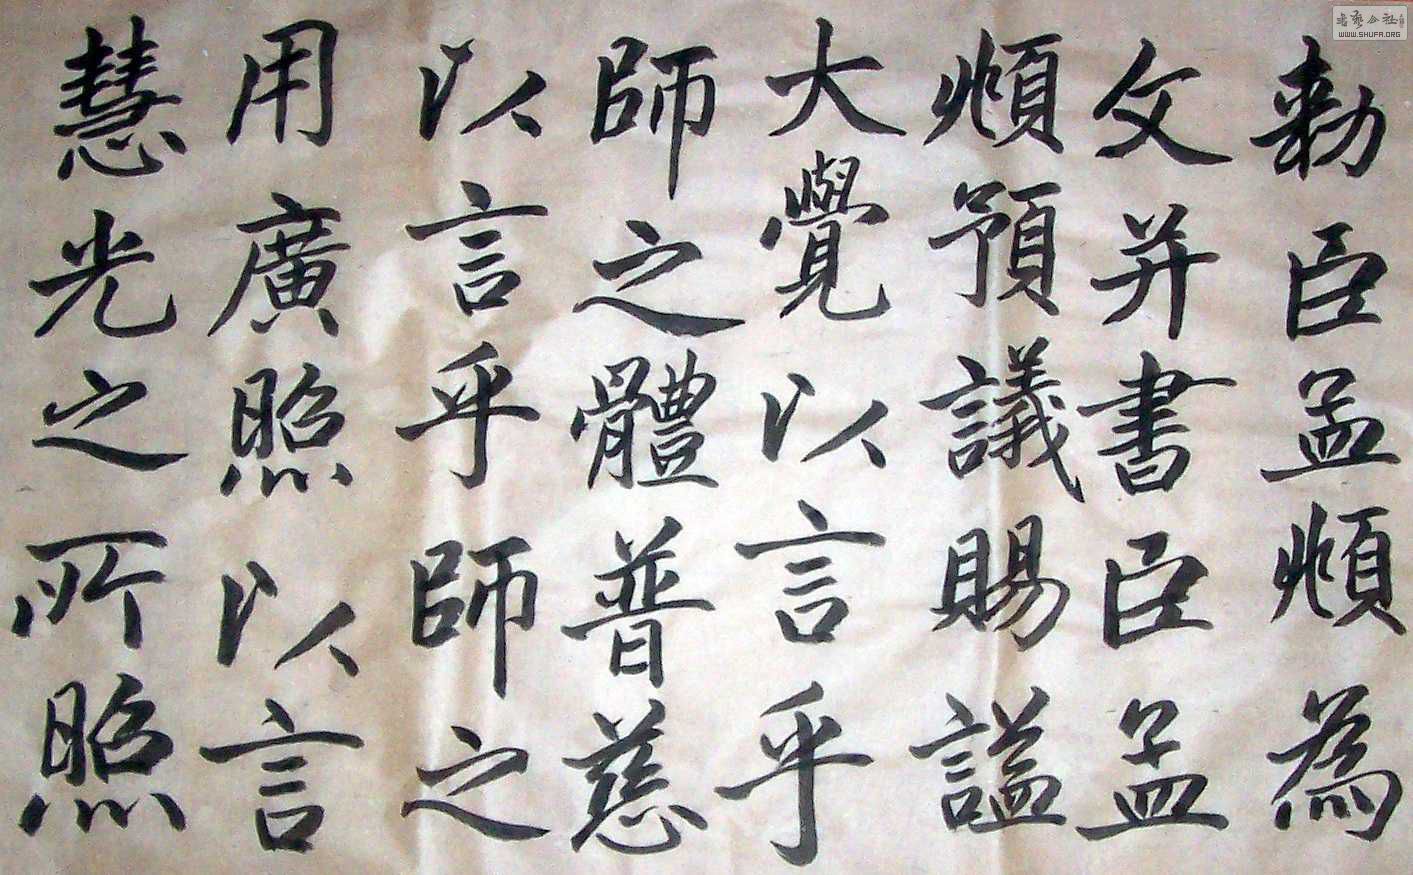 勅臣孟頫為
文并書臣孟
頫預議賜謚
大覺以言乎
師之體普慈
以言乎師之
用廣照以言
慧光之所照
書藝公社
WWW.SHUFA.ORG